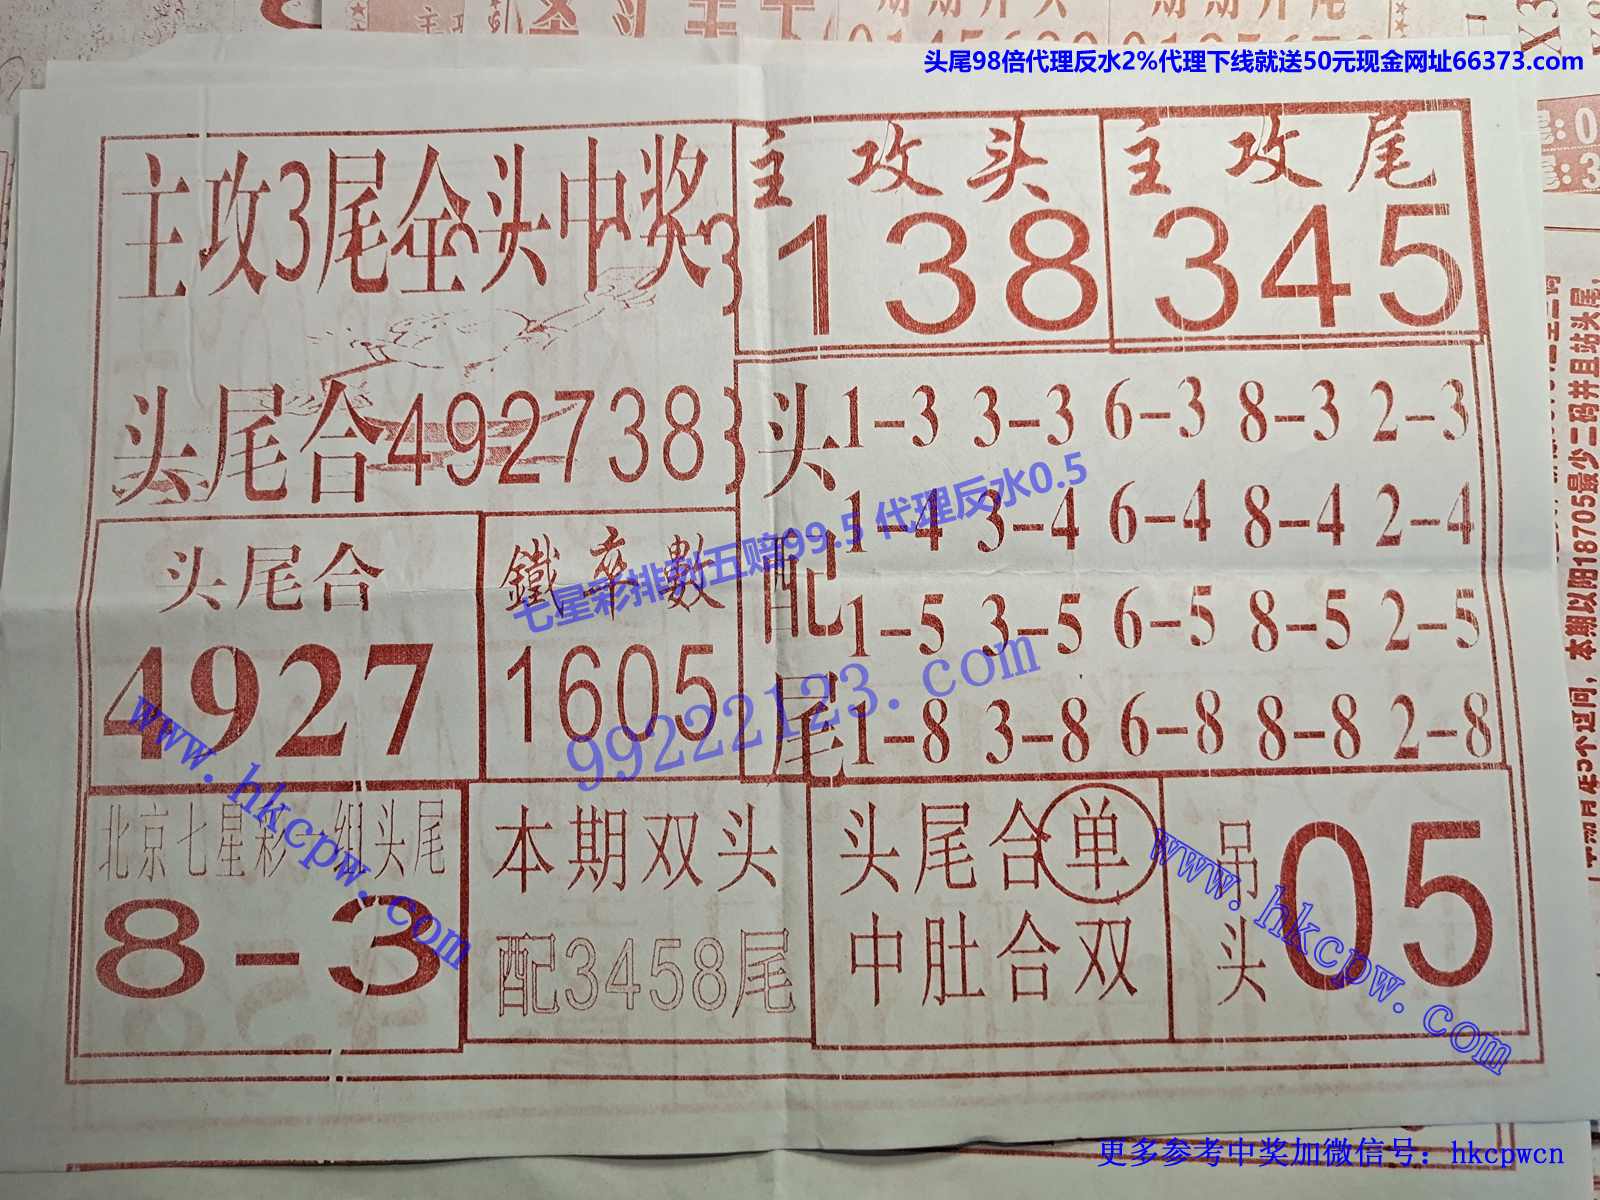 头尾98倍代理反水2%代理下线就送50元现金网址66373.com
主攻3尾全头中奖
主攻头
138
主攻尾
345
头尾合492738
头配尾
1-3 3-3 6-3 8-3 2-3
1-4 3-4 6-4 8-4 2-4
1-5 3-5 6-5 8-5 2-5
1-8 3-8 6-8 8-8 2-8
头尾合
4927
鐵率數
1605
七星彩排列五赔99.5 代理反水0.5
99222123.com
www.hkcpw.com
北京七星彩一组头尾
8-3
本期双头
配3458尾
头尾合单
中肚合双
吊头
05
www.hkcpw.com
本期以阳18705最少二码并且站头尾，
更多参考中奖加微信号：hkcpwcn